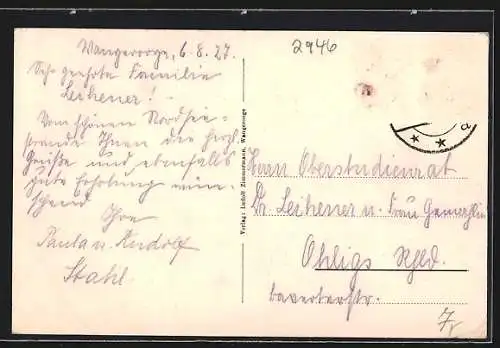 Wangerooge, 6.8.27.
Sehr geehrte Familie
Leihener!
Vom schönen Nordsee-
strande Ihnen die herzl.
Grüße und ebenfalls
gute Erholung wün-
schend
Ihre
Paula u. Rudolf
Stahl.
2946
a
Verlag: Ludolf Zimmermann, Wangerooge
Herrn Oberstudienrat
Dr. Leihener u. Frau Gemahlin
Ohligs Rhld.